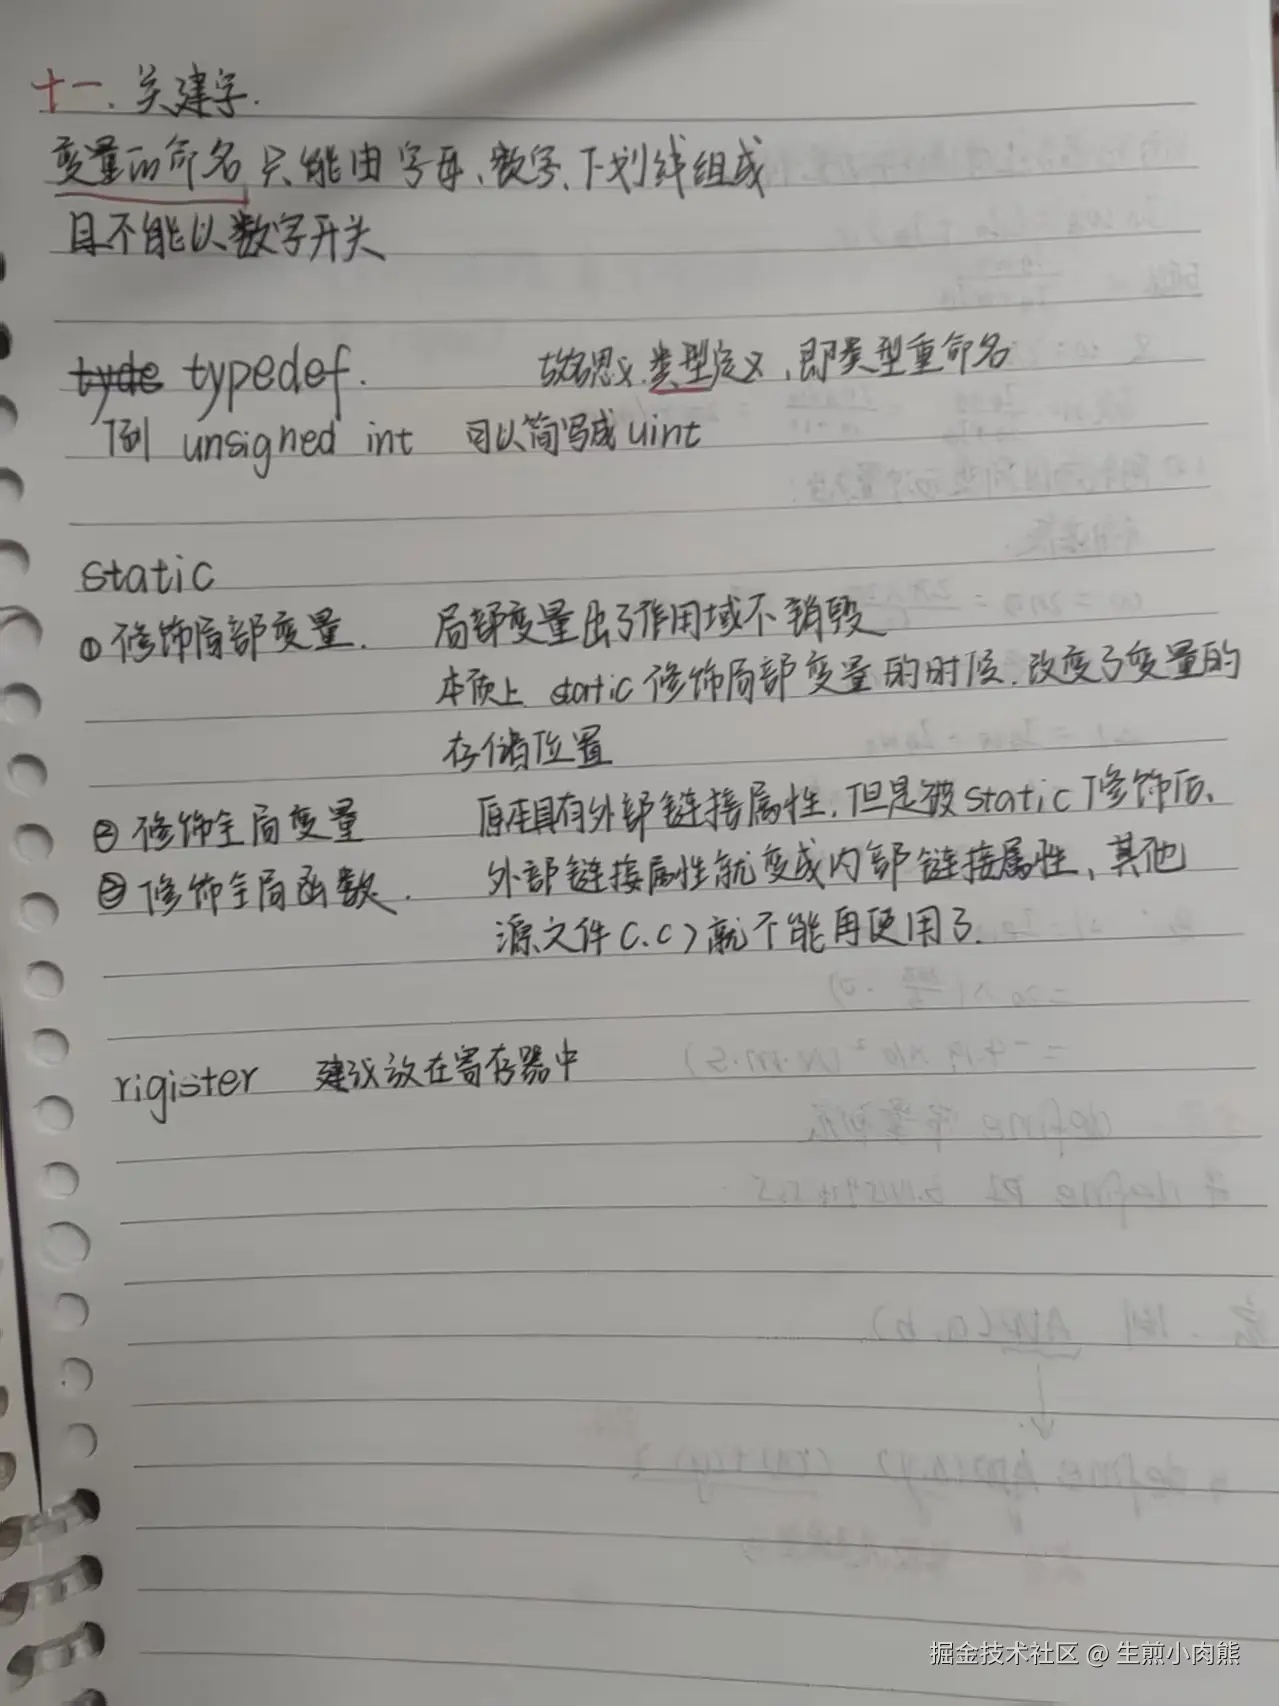 十一. 关建字.
变量的命名只能由字母、数字、下划线组成
且不能以数字开头
tyde typedef. 故名思义.类型定义,即类型重命名
例 unsigned int 可以简写成 uint
static
① 修饰局部变量. 局部变量出了作用域不销毁
本质上 static 修饰局部变量的时候.改变了变量的
存储位置
② 修饰全局变量 原座具有外部链接属性,但是被static修饰后、
③ 修饰全局函数. 外部链接属性就变成内部链接属性、其他
源文件(.c)就不能再使用了.
rigister 建议放在寄存器中
掘金技术社区 @ 生煎小肉熊